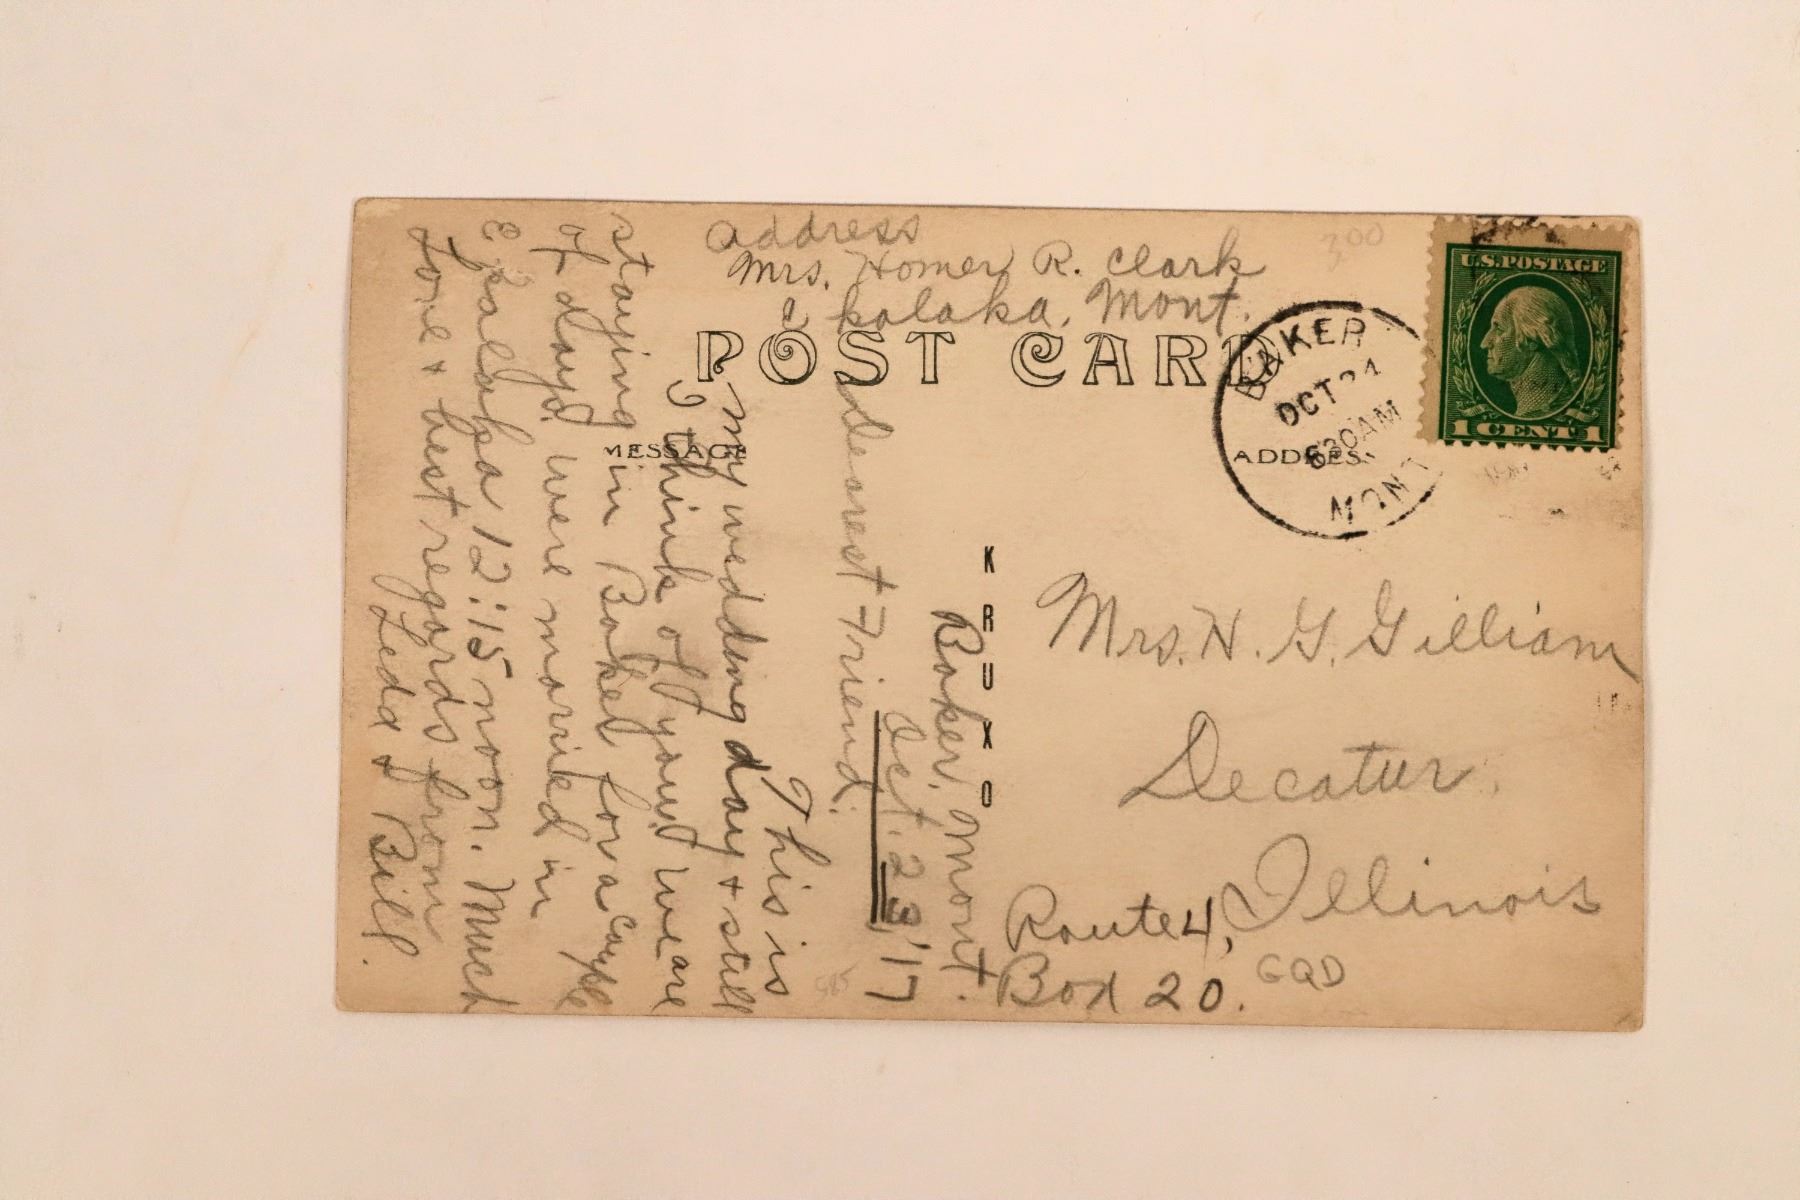 address
Mrs. Homer R. Clark
Ekalaka, Mont.
POST CARD
MESSAGE
ADDRESS
KRUXO
U.S. POSTAGE
1 CENT 1
BAKER
OCT 24
830AM
MONT
300
Baker, Mont.
Oct. 23, '17
Dearest Friend:
This is
my wedding day & still
I think of you. We are
staying in Baker for a couple
of days. Were married in
Ekalaka 12:15 noon. Much
love & best regards from
Leda & Bill.
Mrs. H. G. Gilliam
Decatur,
Illinois
Route 4,
Box 20.
GQD